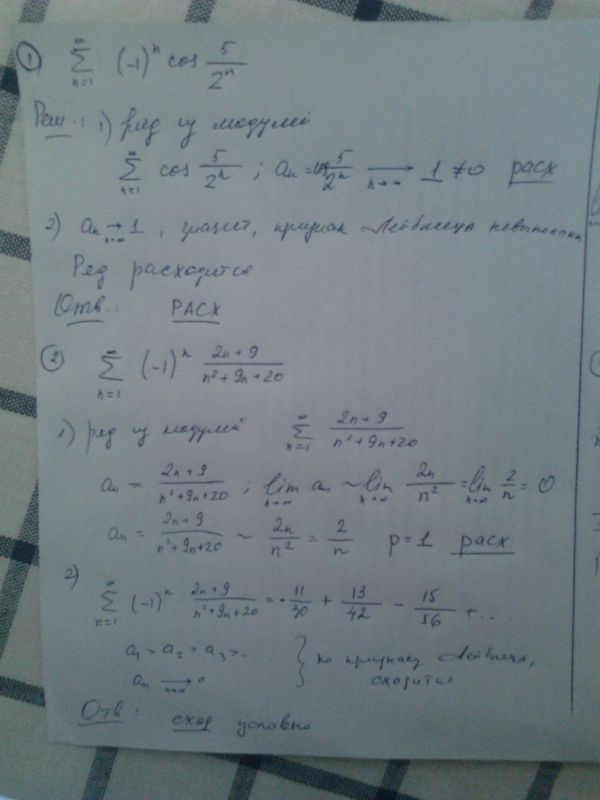 ① ∑_{n=1}^{∞} (-1)^n cos 5/2^n
Реш.: 1) ряд из модулей
∑_{n=1}^{∞} cos 5/2^n ; a_n = cos 5/2^n →_{n→∞} 1 ≠ 0 расх
2) a_n →_{n→∞} 1, значит, признак Лейбница невыполнен
Ряд расходится
Отв.: РАСХ
② ∑_{n=1}^{∞} (-1)^n (2n+9)/(n²+9n+20)
1) ряд из модулей ∑_{n=1}^{∞} (2n+9)/(n²+9n+20)
a_n = (2n+9)/(n²+9n+20) ; lim_{n→∞} a_n ~ lim_{n→∞} 2n/n² = lim_{n→∞} 2/n = 0
a_n = (2n+9)/(n²+9n+20) ~ 2n/n² = 2/n p=1 расх
2)
∑_{n=1}^{∞} (-1)^n (2n+9)/(n²+9n+20) = -11/30 + 13/42 - 15/56 + ...
a_1 > a_2 > a_3 > ... } по признаку Лейбница,
a_n →_{n→∞} 0 сходится
Отв: сход условно